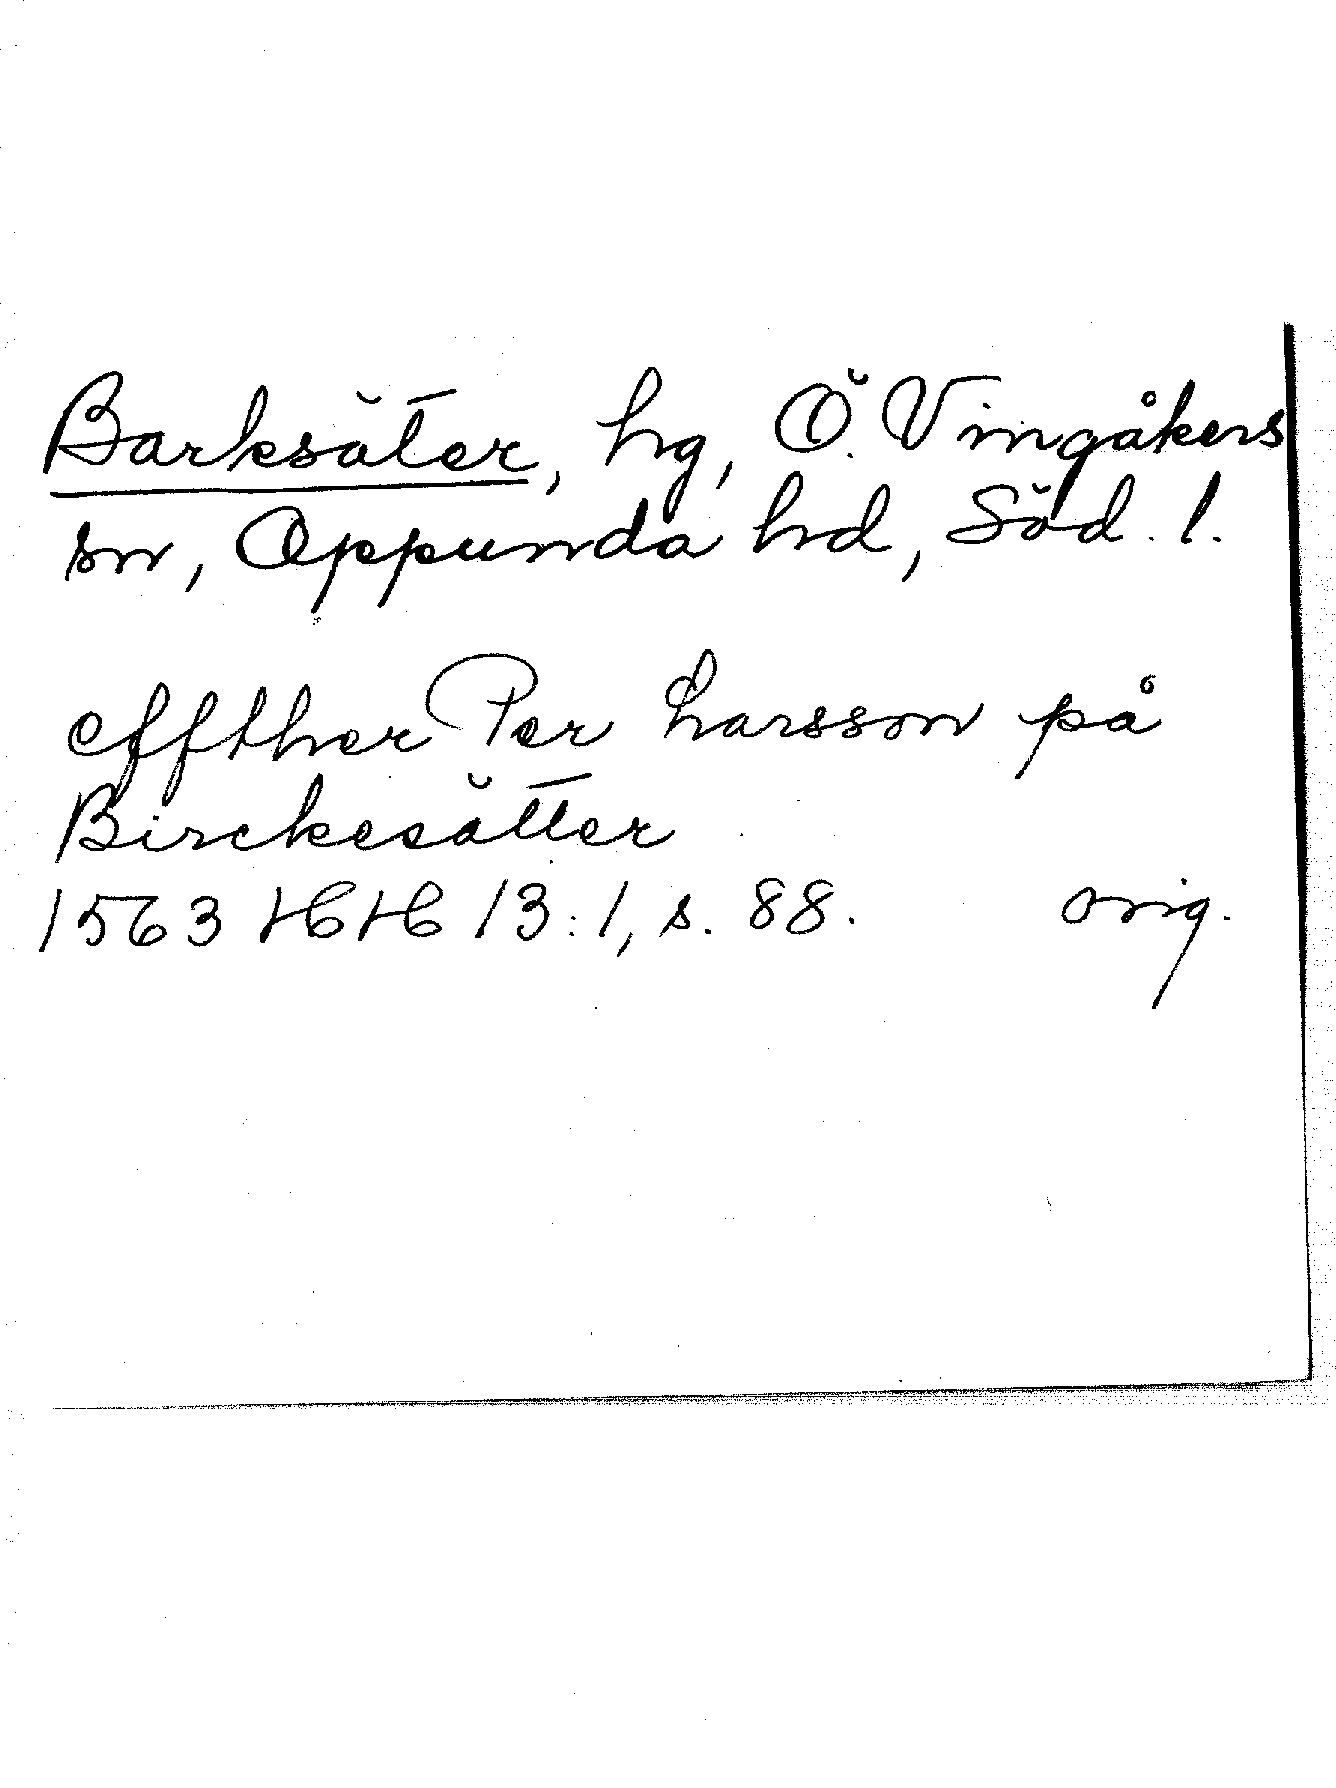 Barksäter, hg, Ö. Vingåkers
sn, Oppunda hd, Söd. l.
effther Per Larsson på
Birckesätter
1563 HH 13:1, s. 88. orig.